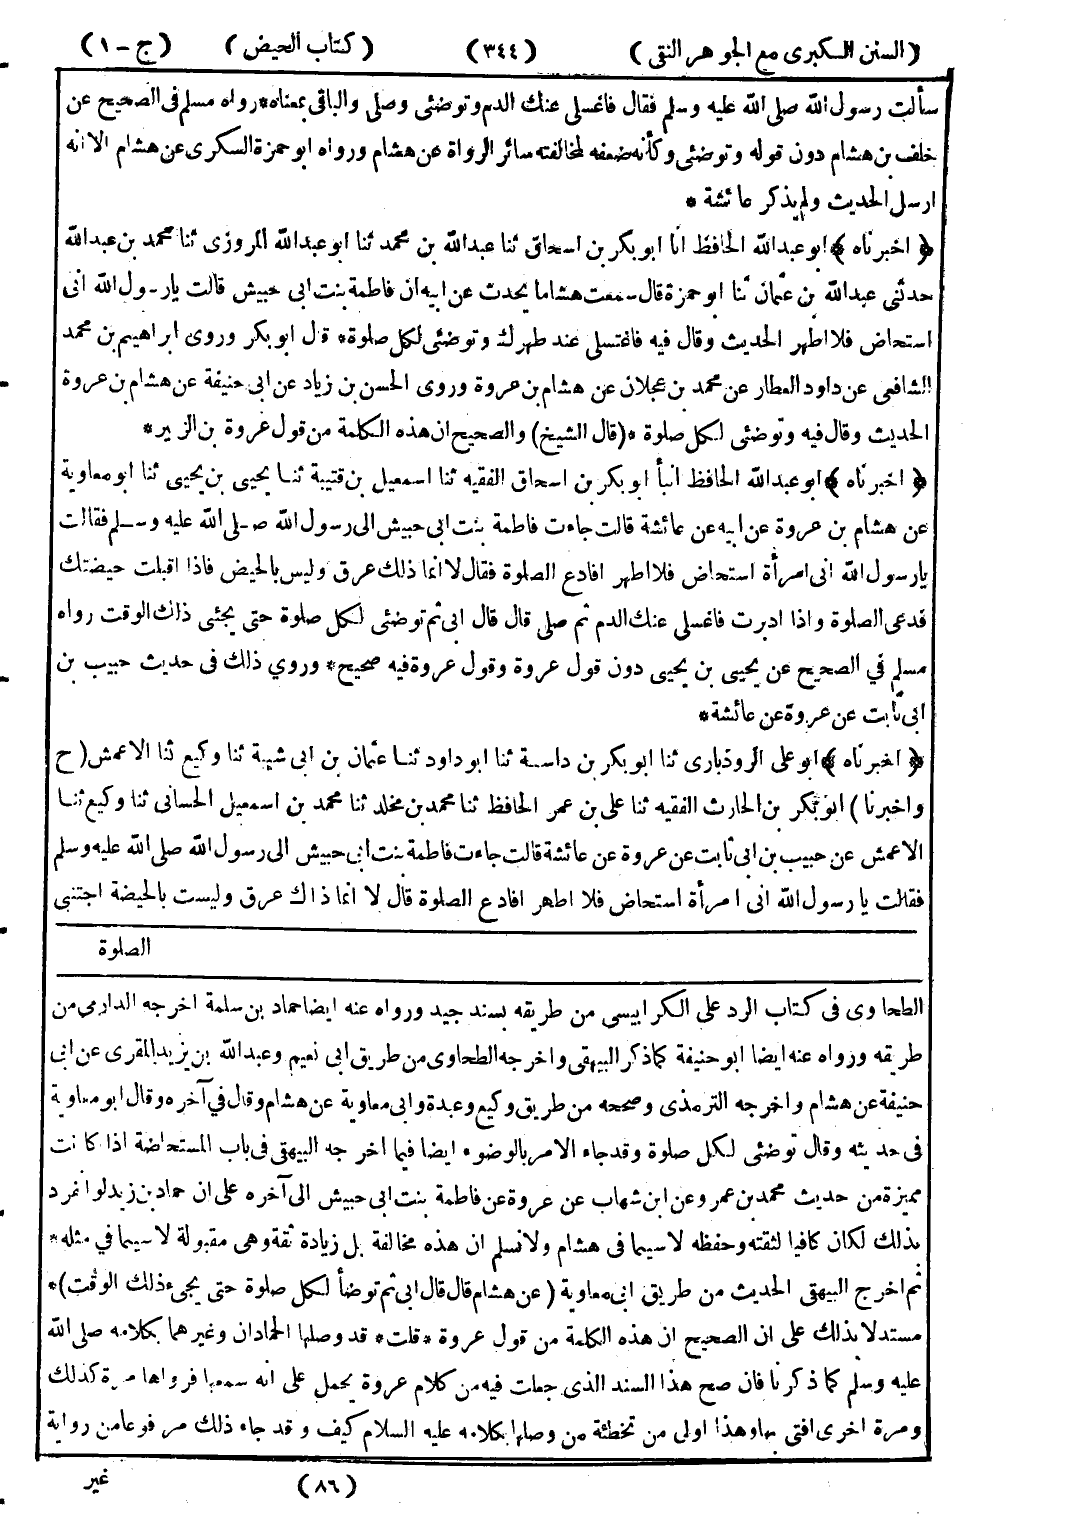 (السنن الكبرى مع الجوهر النقى) (٣٤٤) (كتاب الحيض) (ج-١)
سألت رسول الله صلى الله عليه وسلم فقال فاغسلى عنك الدم وتوضئى وصلى والباقى بمعناه* رواه مسلم فى الصحيح عن
خلف بن هشام دون قوله وتوضئى وكأنه ضعفه لمخالفته سائر الرواة عن هشام ورواه ابو حمزة السكرى عن هشام الا انه
ارسل الحديث ولم يذكر عائشة *
﴿ اخبرناه ﴾ ابو عبدالله الحافظ انا ابو بكر بن اسحاق ثنا عبدالله بن محمد ثنا ابو عبدالله المروزى ثنا محمد بن عبدالله
حدثنى عبدالله بن عثمان ثنا ابو حمزة قال سمعت هشاما يحدث عن ابيه ان فاطمة بنت ابى حبيش قالت يارسول الله انى
استحاض فلا اطهر الحديث وقال فيه فاغتسلى عند طهرك وتوضئى لكل صلوة* قال ابو بكر وروى ابراهيم بن محمد
الشافعى عن داود العطار عن محمد بن عجلان عن هشام بن عروة وروى الحسن بن زياد عن ابى حنيفة عن هشام بن عروة
الحديث وقال فيه وتوضئى لكل صلوة *(قال الشيخ) والصحيح ان هذه الكلمة من قول عروة بن الزبير*
﴿ اخبرناه ﴾ ابو عبدالله الحافظ انبأ ابو بكر بن اسحاق الفقيه ثنا اسمعيل بن قتيبة ثنا يحيى بن يحيى ثنا ابو معاوية
عن هشام بن عروة عن ابيه عن عائشة قالت جاءت فاطمة بنت ابى حبيش الى رسول الله صلى الله عليه وسلم فقالت
يارسول الله انى امرأة استحاض فلا اطهر افادع الصلوة فقال لا انما ذلك عرق وليس بالحيض فاذا اقبلت حيضتك
فدعى الصلوة واذا ادبرت فاغسلى عنك الدم ثم صلى قال قال ابى ثم توضئى لكل صلوة حتى يجئى ذلك الوقت رواه
مسلم في الصحيح عن يحيى بن يحيى دون قول عروة وقول عروة فيه صحيح* وروي ذلك فى حديث حبيب بن
ابى ثابت عن عروة عن عائشة*
﴿ اخبرناه ﴾ ابو على الروذبارى ثنا ابو بكر بن داسة ثنا ابو داود ثنا عثمان بن ابى شيبة ثنا وكيع ثنا الاعمش (ح
واخبرنا) ابو بكر بن الحارث الفقيه ثنا على بن عمر الحافظ ثنا محمد بن مخلد ثنا محمد بن اسمعيل الحسانى ثنا وكيع ثنا
الاعمش عن حبيب بن ابى ثابت عن عروة عن عائشة قالت جاءت فاطمة بنت ابى حبيش الى رسول الله صلى الله عليه وسلم
فقالت يا رسول الله انى امرأة استحاض فلا اطهر افادع الصلوة قال لا انما ذاك عرق وليست بالحيضة اجتنبى
الصلوة
الطحاوى فى كتاب الرد على الكرابيسى من طريقه بسند جيد ورواه عنه ايضا حماد بن سلمة اخرجه الدارمى من
طريقه ورواه عنه ايضا ابو حنيفة كما ذكر البيهقى واخرجه الطحاوى من طريق ابى نعيم وعبدالله بن يزيد المقرى عن ابى
حنيفة عن هشام واخرجه الترمذى وصححه من طريق وكيع وعبدة وابى معاوية عن هشام وقال في آخره وقال ابو معاوية
فى حديثه وقال توضئى لكل صلوة وقد جاء الامر بالوضوء ايضا فيما اخرجه البيهقى فى باب المستحاضة اذا كانت
مميزة من حديث محمد بن عمرو عن ابن شهاب عن عروة عن فاطمة بنت ابى حبيش الى آخره على ان حماد بن زيد لو انفرد
بذلك لكان كافيا لثقته وحفظه لا سيما فى هشام ولا نسلم ان هذه مخالفة بل زيادة ثقة وهى مقبولة لا سيما في مثله*
ثم اخرج البيهقى الحديث من طريق ابى معاوية (عن هشام قال قال ابى ثم توضأ لكل صلوة حتى يجىء ذلك الوقت)*
مستدلا بذلك على ان الصحيح ان هذه الكلمة من قول عروة *قلت* قد وصلها الحمادان وغيرهما بكلامه صلى الله
عليه وسلم كما ذكرنا فان صح هذا السند الذى جعلت فيه من كلام عروة يحمل على انه سمعها فرواها مرة كذلك
ومرة اخرى افتى بها وهذا اولى من تخطئة من وصلها بكلامه عليه السلام كيف وقد جاء ذلك مرفوعا من رواية
(٨٦) غير